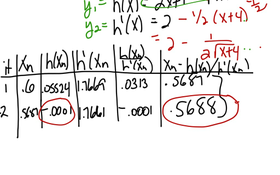 y₁ = h(x) = 2x + 
y₂ = h'(x) = 2 - 1/2 (x+4)^-1/2
= 2 - 1/2(x+4...
# xn h(xn) h'(xn) h(xn)/h'(xn) xn - h(xn)/h'(xn)
1 .6 .05524 1.7669 .0313 .5687
2 -.0001 1.7661 -.0001 .5688